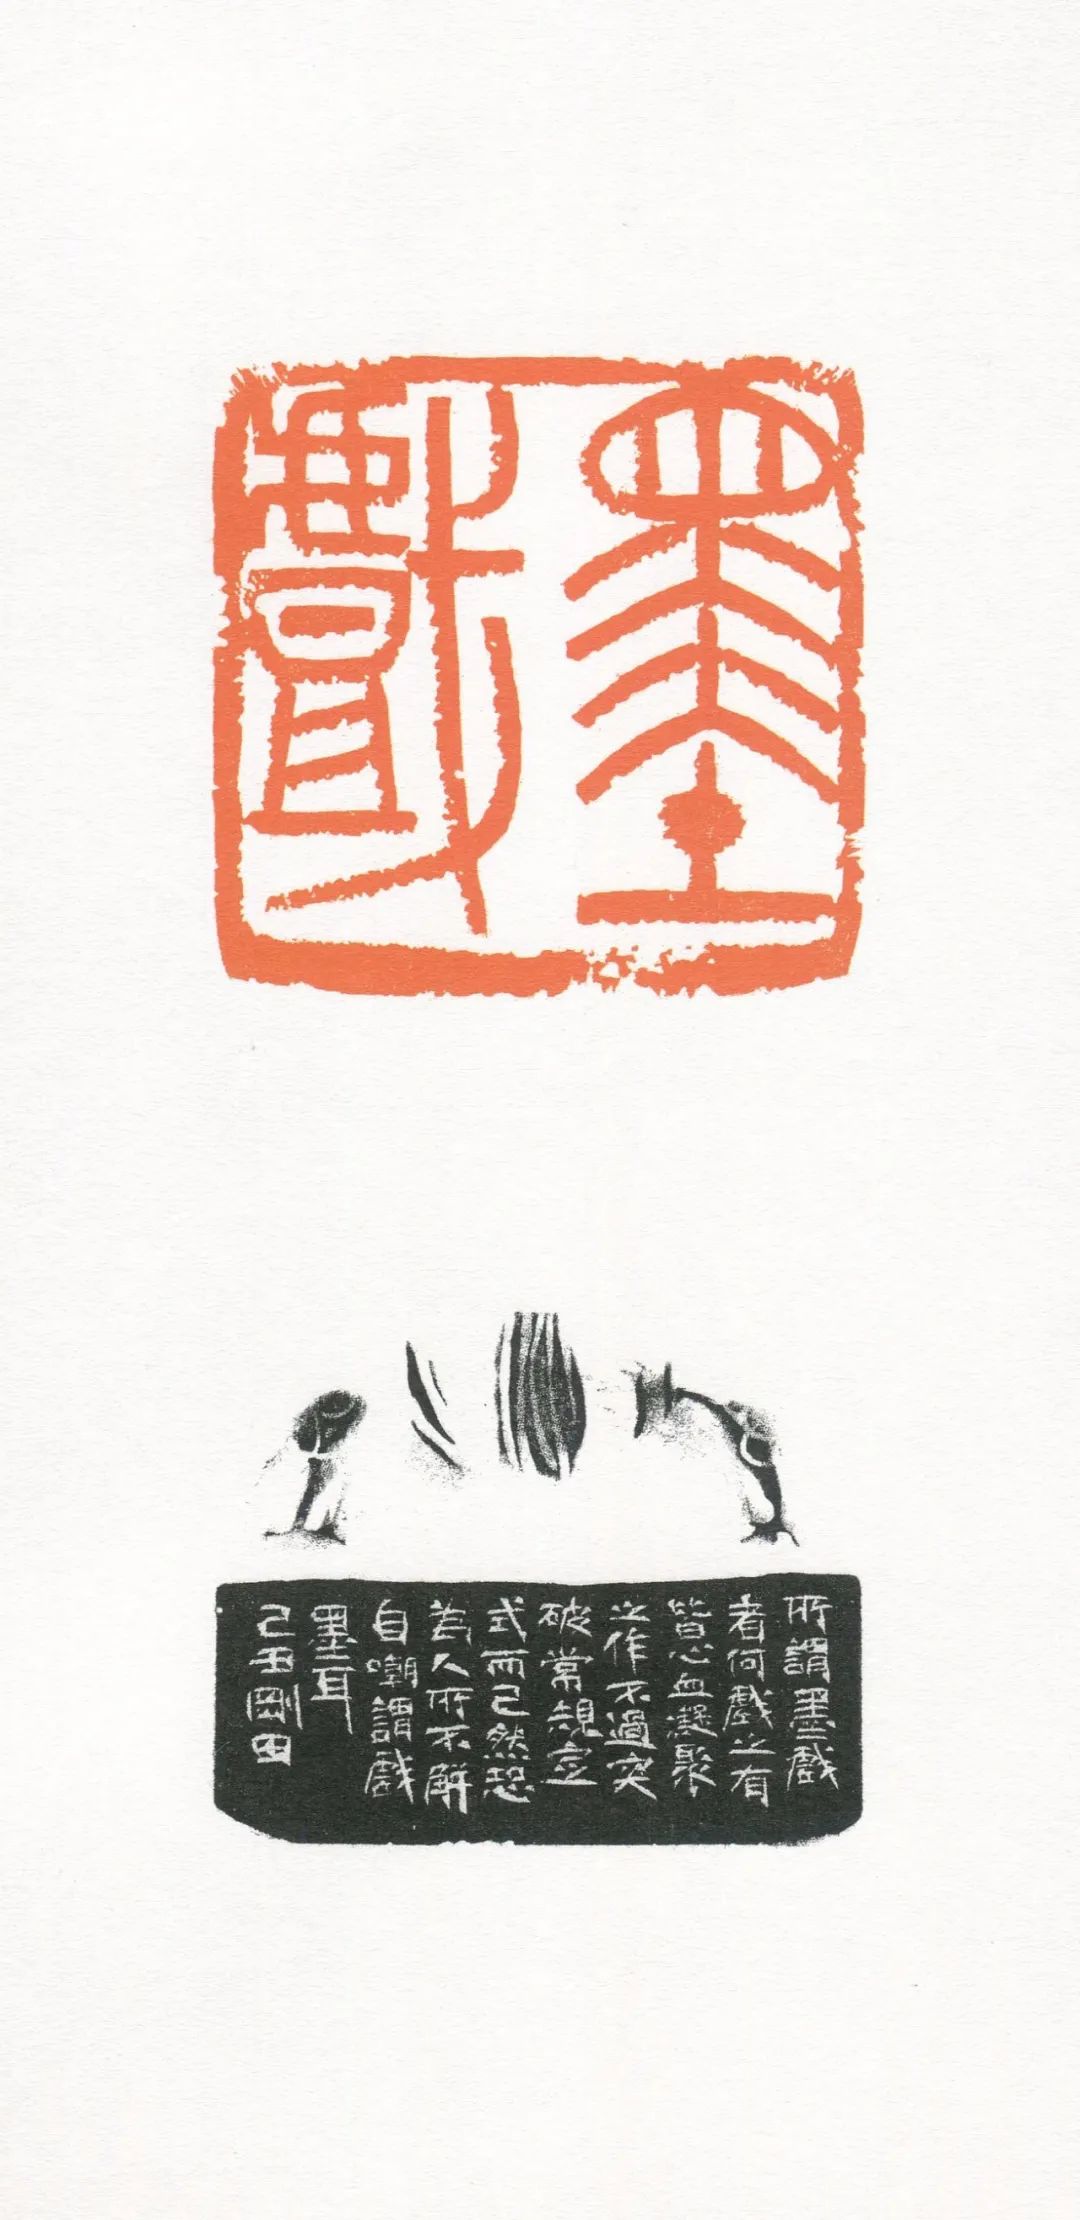 墨戲
所謂墨戲
者何戲之有
皆心血凝聚
之作不過突
破常規定
式而已然恐
為人所不解
自嘲謂戲
墨耳
己丑剛田